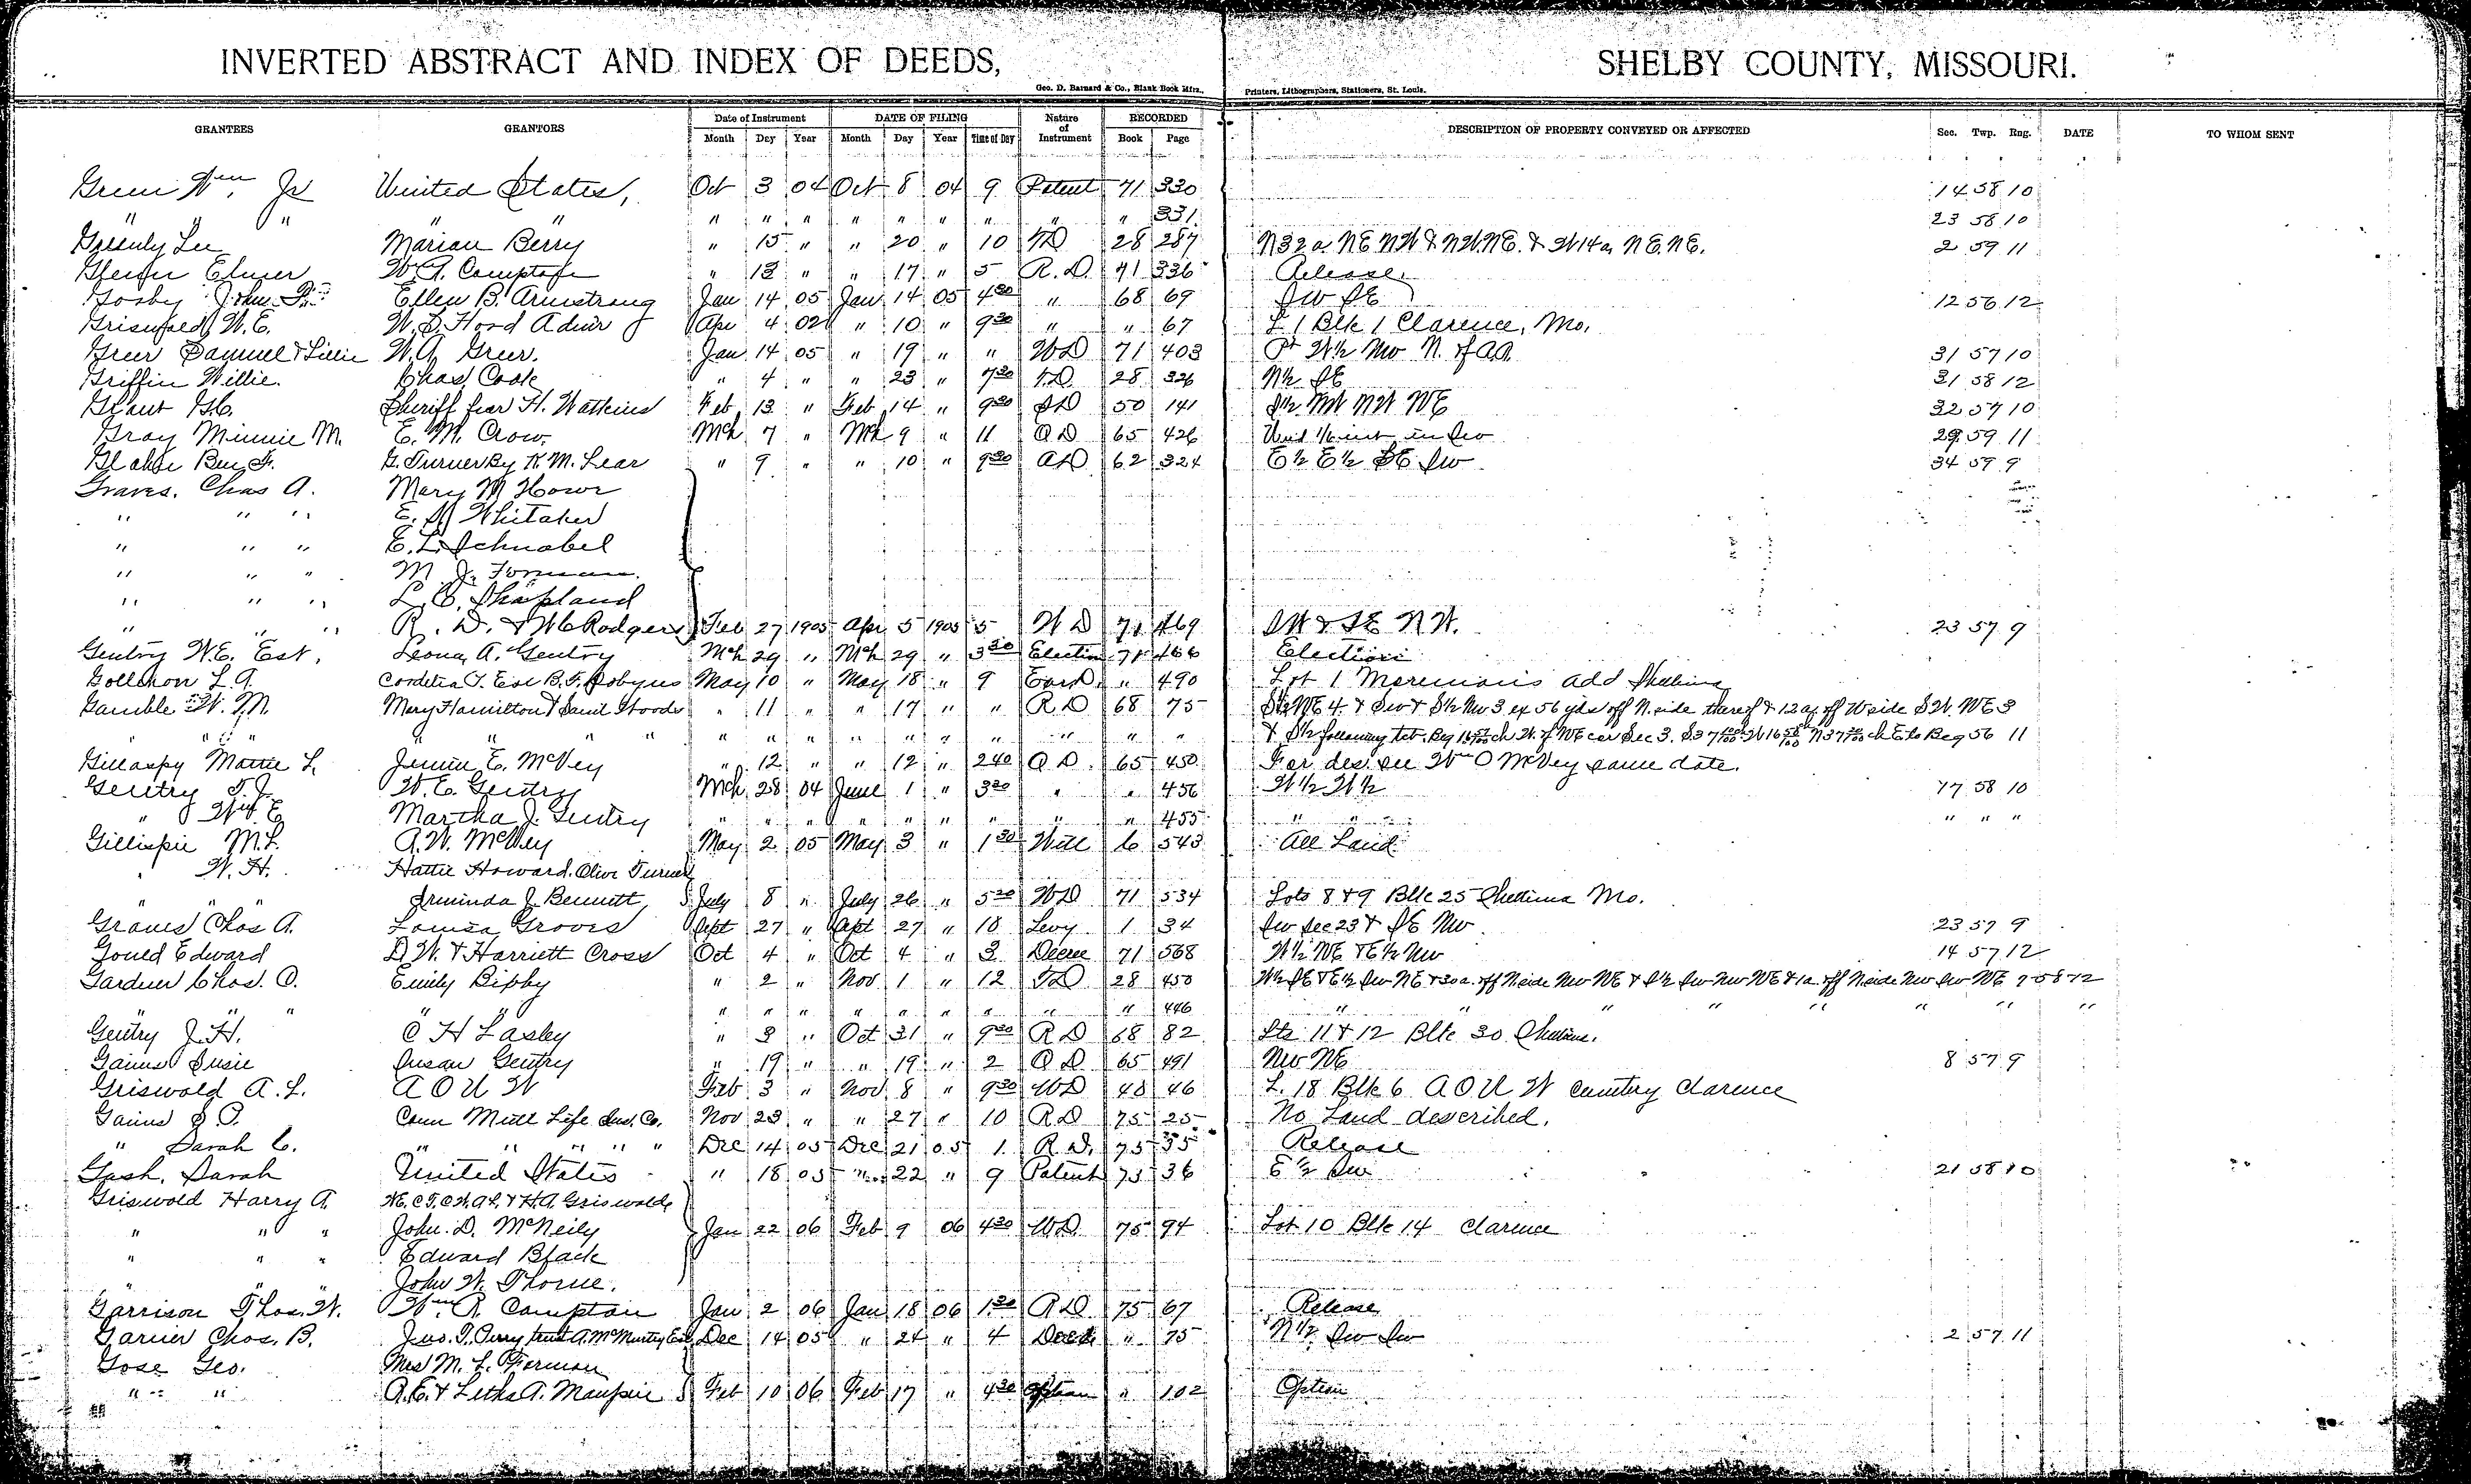 INVERTED ABSTRACT AND INDEX OF DEEDS, SHELBY COUNTY, MISSOURI.
Geo. D. Barnard & Co., Blank Book Mfrs., Printers, Lithographers, Stationers, St. Louis.
GRANTEES GRANTORS Date of Instrument DATE OF FILING Nature of Instrument RECORDED DESCRIPTION OF PROPERTY CONVEYED OR AFFECTED Sec. Twp. Rng. DATE TO WHOM SENT
Month Day Year Month Day Year Time of Day Book Page
Wm. Jr United States, Oct 3 04 Oct 8 04 9 Patent 71 330 14 58 10
" " " " " " " " " " " " " " 331 23 58 10
Lee Marian Berry " 15 " " 20 " 10 TD 28 287 N32a NE NW & NW NE. & W14a NE.NE. 2 59 11
Elmer " 13 " " 17 " 5 R.D. 41 336 Release.
John Ellen B. Armstrong Jan 14 05 Jan 14 05 4 30 " 68 69 SW SE 12 56 12
Griswold W. E. W. S. Hood Admr Apr 4 02 " 10 " 9 30 " " 67 L 1 Blk 1 Clarence, Mo.
Greer Samuel & Lillie W. A. Greer. Jan 14 05 " 19 " " WD 71 403 Pt W½ NW N. of 31 57 10
Griffin Willie. Chas. Cook " 4 " " 23 " 7 30 TD 28 326 N½ SE 31 58 12
Grant Sheriff for H. Watkins Feb 13 " Feb 14 " 9 30 SD 50 141 S½ NW NW NE 32 57 10
Gray Minnie M. E. M. Crow. Mch 7 " Mch 9 " 11 QD 65 426 Und 1/6 int in SW 29 59 11
Ben F. G. Turner By K M. Lear " 9 " " 10 " 9 30 62 324 E½ E½ SE SW 34 59 9
Graves. Chas A. Mary M Howe
" " " E. Whitaker
" " " E. L. Schnabel
" " " M. J. Forman.
" " " L. C. Shapland
" " " R. D. & W C Rodgers Feb 27 1905 Apr 5 1905 5 W D 71 469 SW & SE NW. 23 57 9
Gentry W.E. Est. Leona A. Gentry Mch 29 " Mch 29 " 3 30 Election 71 466 Election
L. A. Cordelia B. F. Dobyns May 10 " May 18 " 9 " 490 Lot 1 add Shelbina
Gamble W. M. Mary Hamilton & Saml Woods " 11 " " 17 " " R.D 68 75 S½ NE 4 & SW & S½ NW 3 ex 56 yds off N. side thereof & 12 a. off W side SW. NE 3
" " " " " " " " " " " " " " " " & S½ following tct. Beg W. of NE cor Sec 3. E to Beg 56 11
Gillaspy Mattie L. Jennie E. McVey " 12 " " 12 " 2 40 Q D. 65 450 For des. see Wm O McVey same date.
Gentry T. J. W. E. Gentry Mch 28 04 June 1 " 3 30 " " 456 W½ W½ 17 58 10
" W E Martha J. Gentry " " " " " " " " " 455 " " " " "
Gillispie M. L. A. W. McVey May 2 05 May 3 " 1 30 Will 6 543 All Land
" W. H. Hattie Howard. Olive Turner
" " " J. Bennett July 8 " July 26 " 5 30 WD 71 534 Lots 8 & 9 Blk 25 Shelbina Mo.
Graves Chas A. Louisa Groves Sept 27 " Sept 27 " 10 Levy 1 34 SW Sec 23 & SE NW 23 57 9
Gould Edward D. W. & Harriett Cross Oct 4 " Oct 4 " 3 Decree 71 568 W½ NE & E½ NW 14 57 12
Gardner Chas. O. Emily Bixby " 2 " Nov 1 " 12 TD 28 450 W½ SE & E½ SW NE & 30a. off N. side NW NE & S½ SW NW NE & 1a. off N. side NW SW NE 7 58 12
" " " " " " " " " " " " " 446 " " " " " " "
Gentry J. H. C H Lasley " 3 " Oct 31 " 9 30 R D 68 82 Lts 11 & 12 Blk 30 Shelbina.
Gaines Susie Susan Gentry " 19 " " 19 " 2 Q D 65 491 NW NE 8 57 9
Griswold A. L. A O U W Feb 3 " Nov 8 " 9 30 WD 48 46 L. 18 Blk 6 A O U W Cemetry Clarence
Gaines Conn Mutl Life Ins. Co. Nov 23 " " 27 " 10 R D 75 25 No Land described.
" Sarah C. " " " " " Dec 14 05 Dec 21 05 1 R. D. 75 35 Release
Gash, Sarah United States " 18 05 " 22 " 9 Patent 75 36 E½ SW 21 58 10
Griswold Harry A. & H.A. Griswold
" " " John. D. McNeily Jan 22 06 Feb 9 06 4 30 WD 75 94 Lot 10 Blk 14 Clarence
" " " Edward Black
" " " John W. Thorne.
Garrison Thos. W. Wm R. Compton Jan 2 06 Jan 18 06 1 30 R D 75 67 Release
Garner Chas. B. Jno. T. Perry trust A. McMurtry Dec 14 05 " 24 " 4 Deed " 75 N½ SW SW 2 57 11
Gose Geo. Mrs M. L.
" " A. E. & Letha A. Maupin Feb 10 06 Feb 17 " 4 30 Option " 102 Option